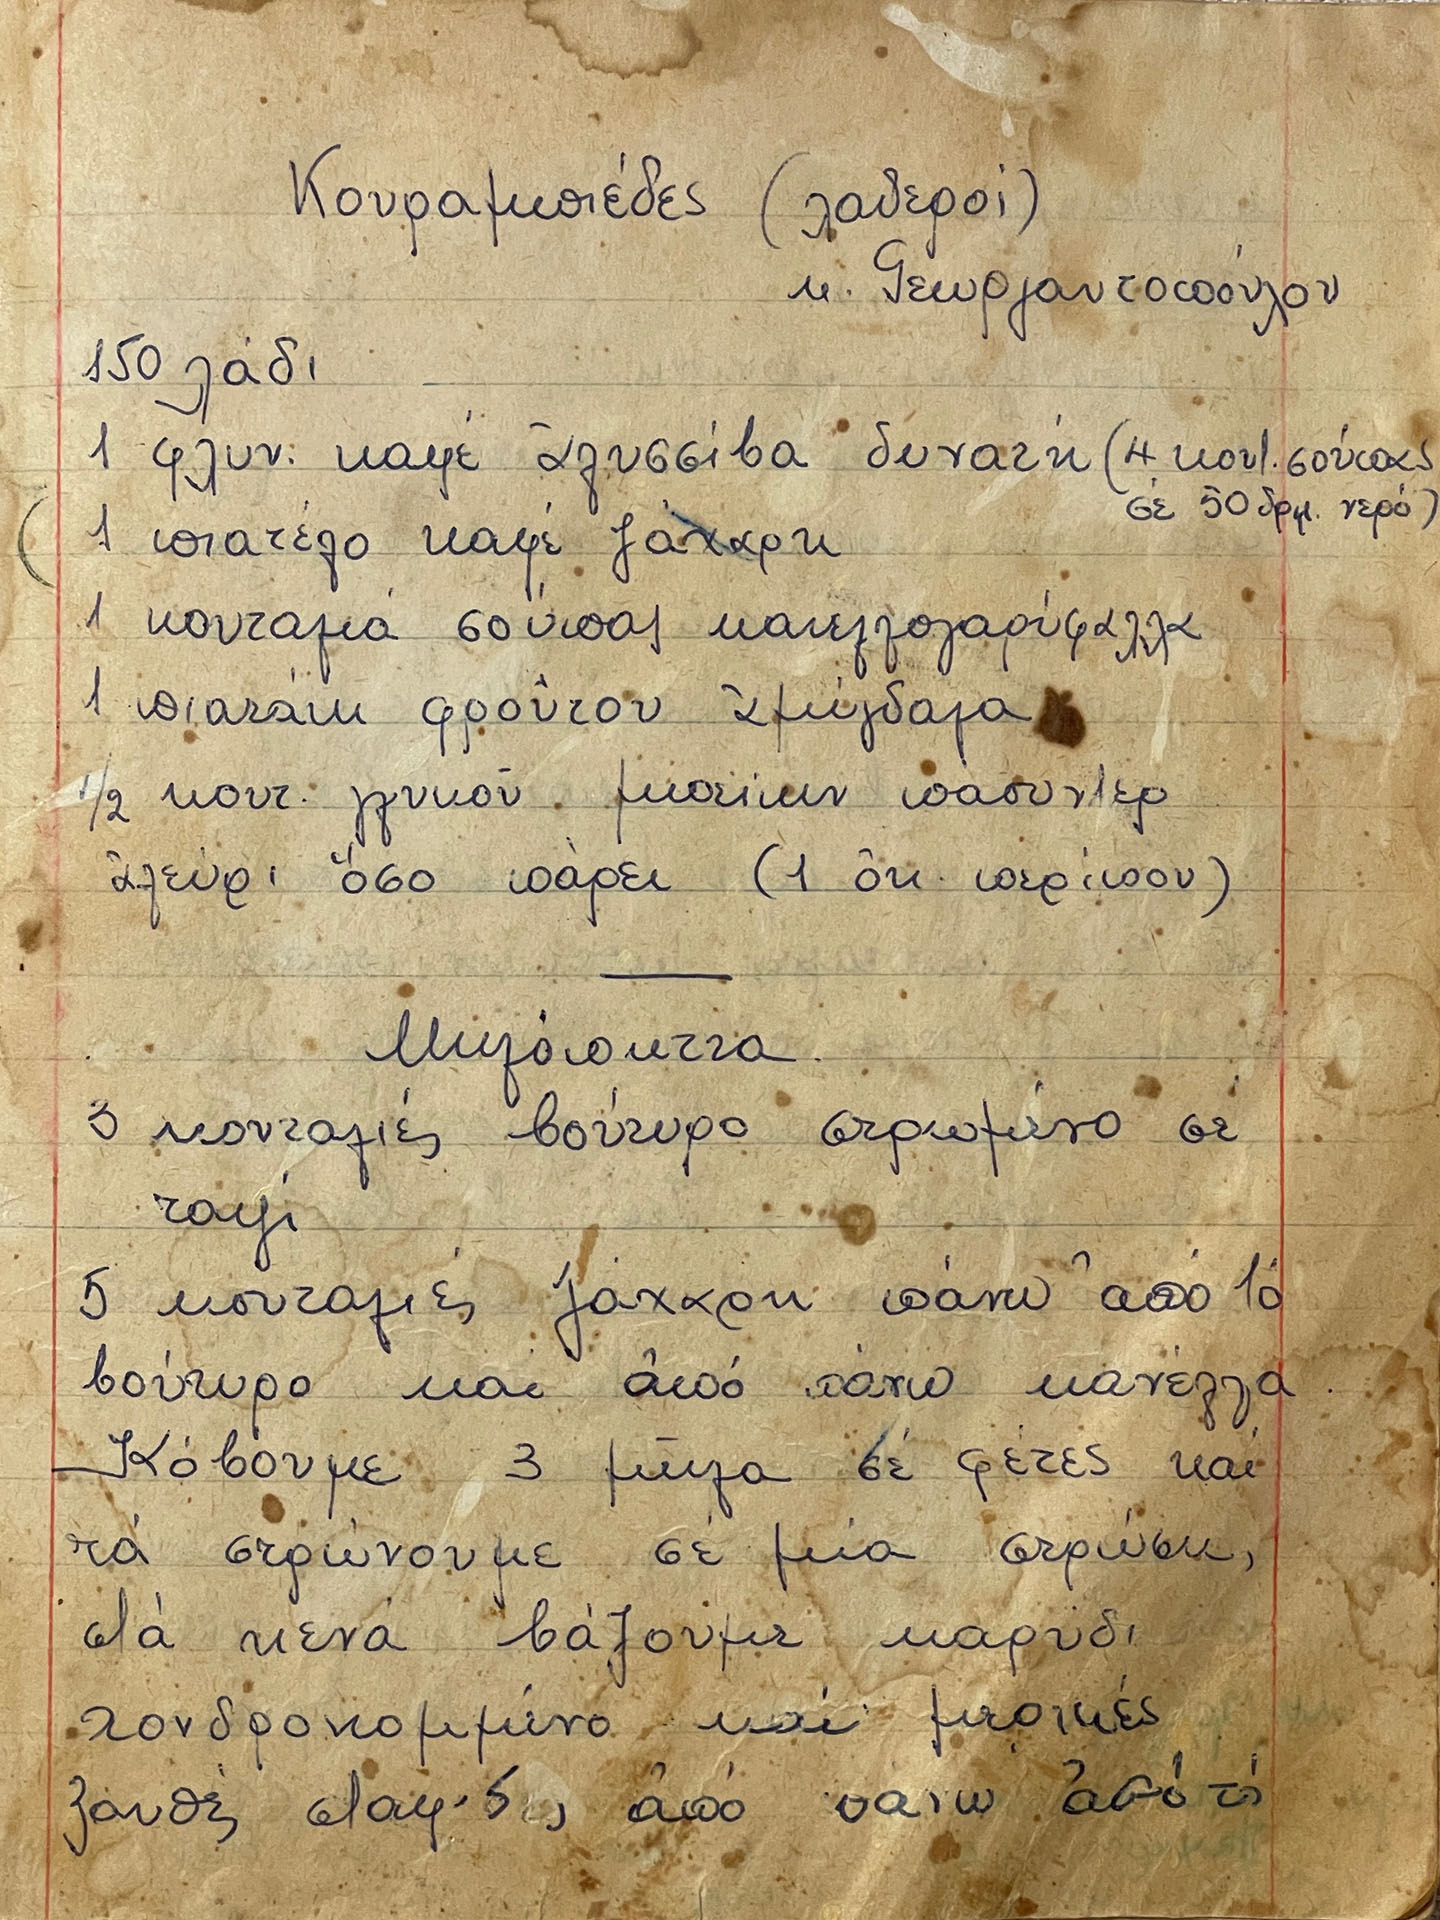 Κουραμπιέδες (λαδεροί)
κ. Γεωργαντοπούλου
150 λάδι
1 φλυν. καφέ ἀλυσσίβα δυνατή (4 κουτ. σούπας
σέ 50 δρμ. νερό)
(1 πιατέλο καφέ ζάχαρη
1 κουταλιά σούπας κανελλογαρύφαλλα
1 πιατάκι φροῦτου ἀμύγδαλα
1/2 κουτ. γλυκοῦ μπέικιν πάουντερ
ἀλεύρι ὅσο πάρει (1 ὀκ. περίπου)
Μηλόπηττα.
3 κουταλιές βούτυρο στρωμένο σέ
ταψί
5 κουταλιές ζάχαρη πάνω ἀπό τό
βούτυρο καί ἀπό πάνω κανέλλα.
Κόβουμε 3 μῆλα σέ φέτες καί
τά στρώνουμε σέ μία στρώση,
στά κενά βάζουμε καρύδι
χονδροκομμένο καί μερικές
ξανθές σταφ. ἀπό πάνω ἀπό τό